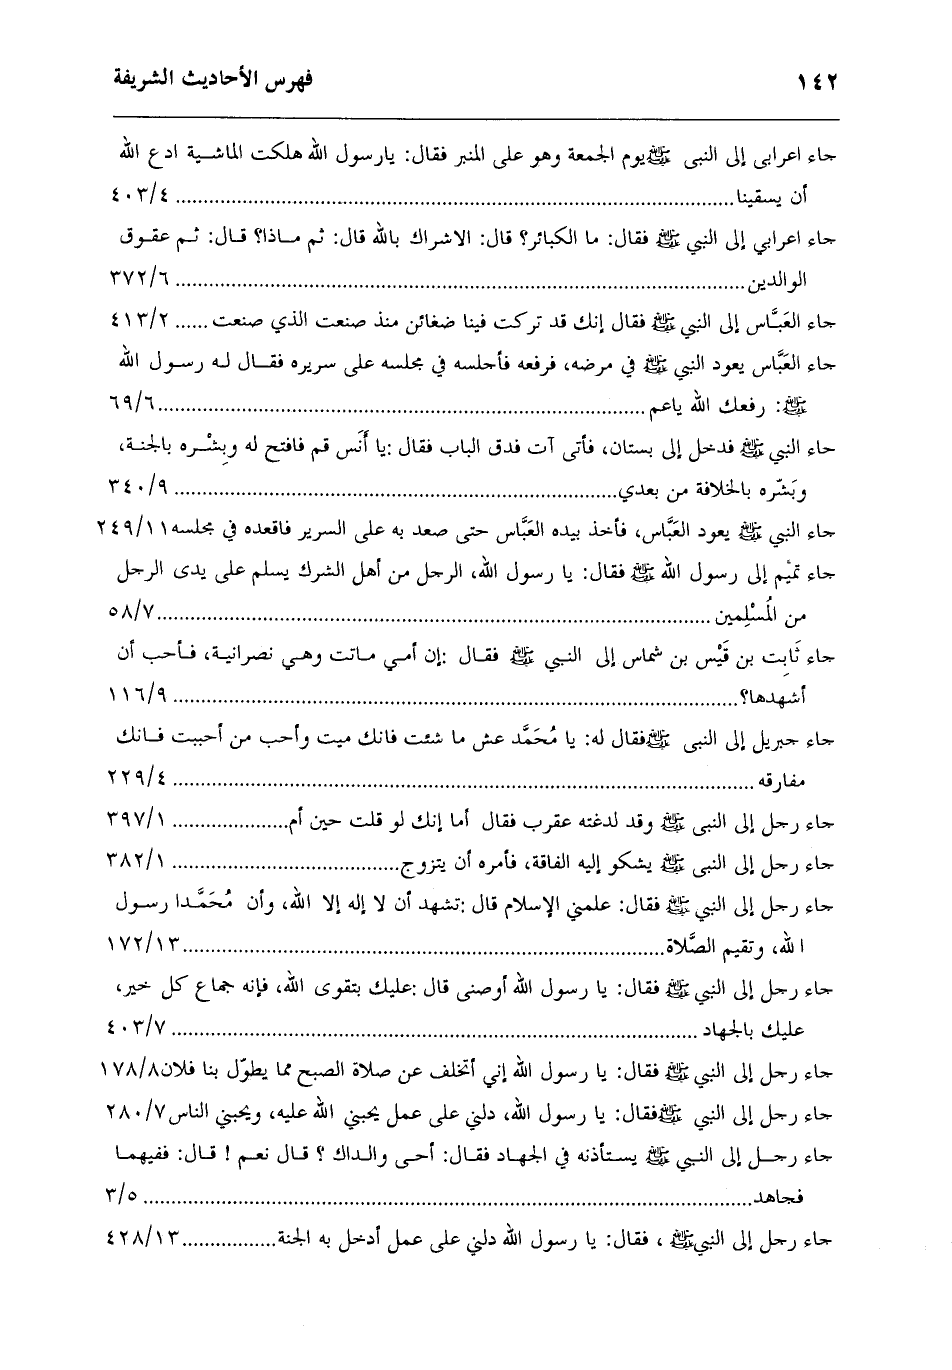 ١٤٢ فهرس الأحاديث الشريفة
جاء اعرابى إلى النبى ﷺيوم الجمعة وهو على المنبر فقال: يارسول الله هلكت الماشية ادع الله
أن يسقينا.................................................. ٤٠٣/٤
جاء اعرابي إلى النبي ﷺ فقال: ما الكبائر؟ قال: الاشراك بالله قال: ثم ماذا؟ قال: ثم عقوق
الوالدين.................................................. ٣٧٢/٦
جاء العَبَّاس إلى النبي ﷺ فقال إنك قد تركت فينا ضغائن منذ صنعت الذي صنعت ...... ٤١٣/٢
جاء العَبَّاس يعود النبي ﷺ في مرضه، فرفعه فأجلسه في مجلسه على سريره فقال له رسول الله
ﷺ: رفعك الله ياعم..................................................٦٩/٦
جاء النبي ﷺ فدخل إلى بستان، فأتى آت فدق الباب فقال :يا أَنَس قم فافتح له وبِشْره بالجنة،
وبَشّره بالخلافة من بعدي.................................................. ٣٤٠/٩
جاء النبي ﷺ يعود العَبَّاس، فأخذ بيده العَبَّاس حتى صعد به على السرير فاقعده في مجلسه٢٤٩/١١
جاء تمَيْم إلى رسول الله ﷺ فقال: يا رسول الله، الرجل من أهل الشرك يسلم على يدى الرجل
من المُسْلِمين ..................................................٥٨/٧
جاء ثَابِت بن قَيْس بن شماس إلى النبي ﷺ فقال :إن أمي ماتت وهي نصرانية، فأحب أن
أشهدها؟.................................................. ١١٦/٩
جاء جبريل إلى النبى ﷺفقال له: يا مُحَمَّد عش ما شئت فانك ميت وأحب من أحببت فانك
مفارقه .................................................. ٢٢٩/٤
جاء رجل إلى النبى ﷺ وقد لدغته عقرب فقال أما إنك لو قلت حين أم.................... ٣٩٧/١
جاء رجل إلى النبى ﷺ يشكو إليه الفاقة، فأمره أن يتزوج.................................. ٣٨٢/١
جاء رجل إلى النبي ﷺ فقال: علمني الإسلام قال :تشهد أن لا إله إلا الله، وأن مُحَمَّدا رسول
الله، وتقيم الصَّلاة..................................................١٧٢/١٣
جاء رجل إلى النبي ﷺ فقال: يا رسول الله أوصنى قال :عليك بتقوى الله، فإنه جماع كل خير،
عليك بالجهاد .................................................. ٤٠٣/٧
جاء رجل إلى النبي ﷺ فقال: يا رسول الله إني أتخلف عن صلاة الصبح مما يطوّل بنا فلان١٧٨/٨
جاء رجل إلى النبي ﷺفقال: يا رسول الله، دلني على عمل يحبني الله عليه، ويحبني الناس٢٨٠/٧
جاء رجل إلى النبي ﷺ يستأذنه في الجهاد فقال: أحى والداك ؟ قال نعم ! قال: ففيهما
فجاهد.................................................. ٣/٥
جاء رجل إلى النبيﷺ ، فقال: يا رسول الله دلني على عمل أدخل به الجنة.................٤٢٨/١٣